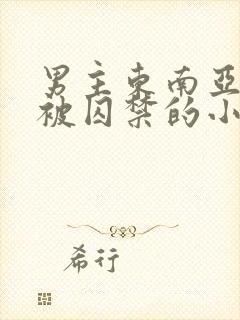 男主东南亚
被囚禁的小
希行